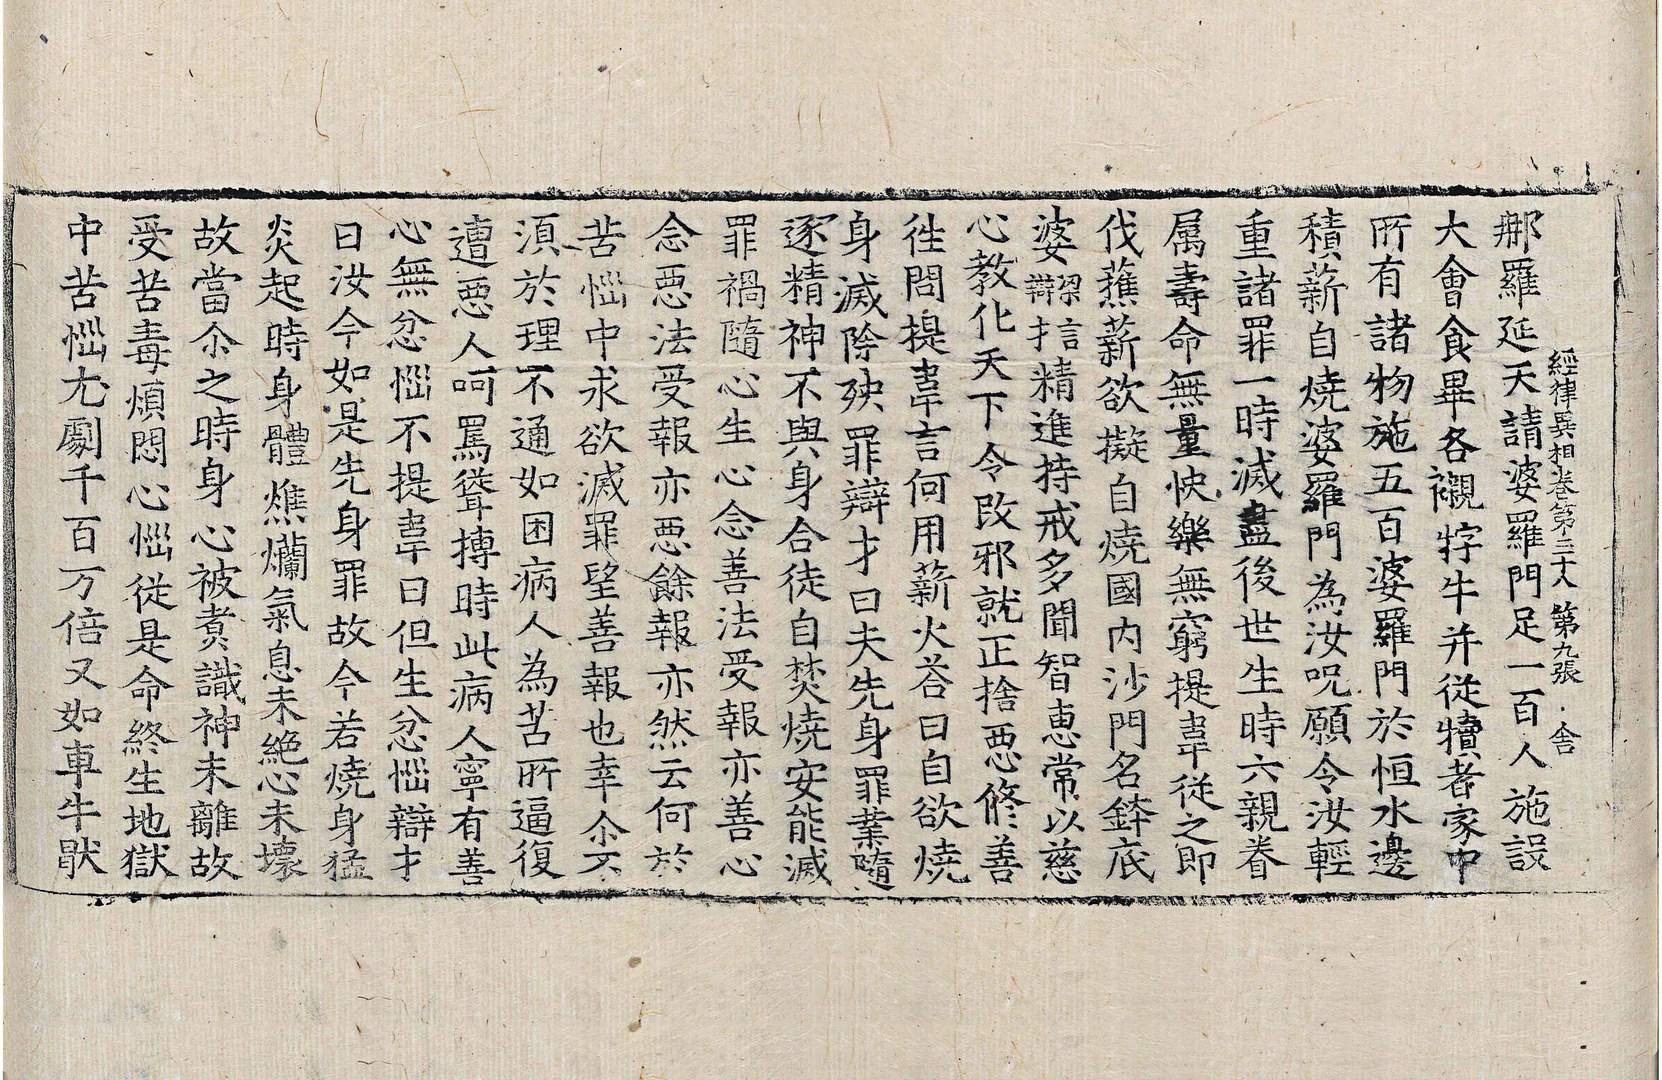 經律異相卷第三十八 第九張 舍
那羅延天請婆羅門足一百人施設
大會食畢各襯牸牛并從犢者家中
所有諸物施五百婆羅門於恒水邊
積薪自燒婆羅門為汝呪願令汝輕
重諸罪一時滅盡後世生時六親眷
属壽命無量快樂無窮提韋從之即
伐蕉薪欲擬自燒國内沙門名鉢底
婆梁言辯才精進持戒多聞智惠常以慈
心教化天下令改邪就正捨惡脩善
徃問提韋言何用薪火荅曰自欲燒
身滅除殃罪辯才曰夫先身罪業隨
逐精神不與身合徒自焚燒安能滅
罪禍隨心生心念善法受報亦善心
念惡法受報亦惡餘報亦然云何於
苦惱中求欲滅罪望善報也幸尒不
湏於理不通如困病人為苦所逼復
遭惡人呵罵聳搏時此病人寧有善
心無忿惱不提韋曰但生忿惱辯才
曰汝今如是先身罪故今若燒身猛
炎起時身體燋爛氣息未絶心未壞
故當尒之時身心被煑識神未離故
受苦毒煩悶心惱從是命終生地獄
中苦惱尤劇千百万倍又如車牛猒